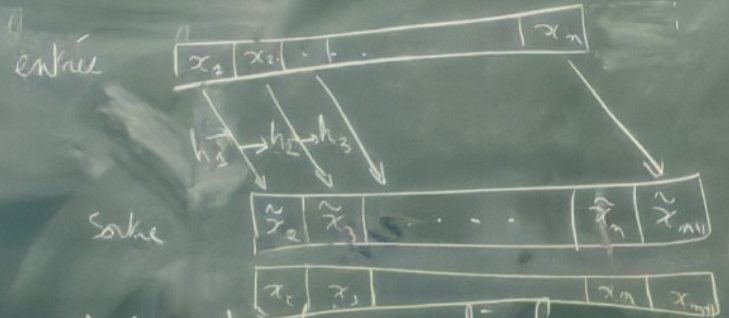 entrée x₁ x₂ . . . xₙ
h₁ → h₂ → h₃
Sortie x̃₂ x̃₃ . . . . x̃ₙ x̃ₙ₊₁
x₂ x₃ xₙ xₙ₊₁